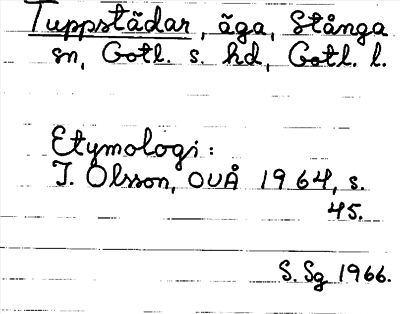 Tuppstädar, äga, Stånga
sn, Gotl. s. hd, Gotl. l.
Etymologi:
I. Olsson, OUÅ 1964, s.
45.
S. Sg 1966.